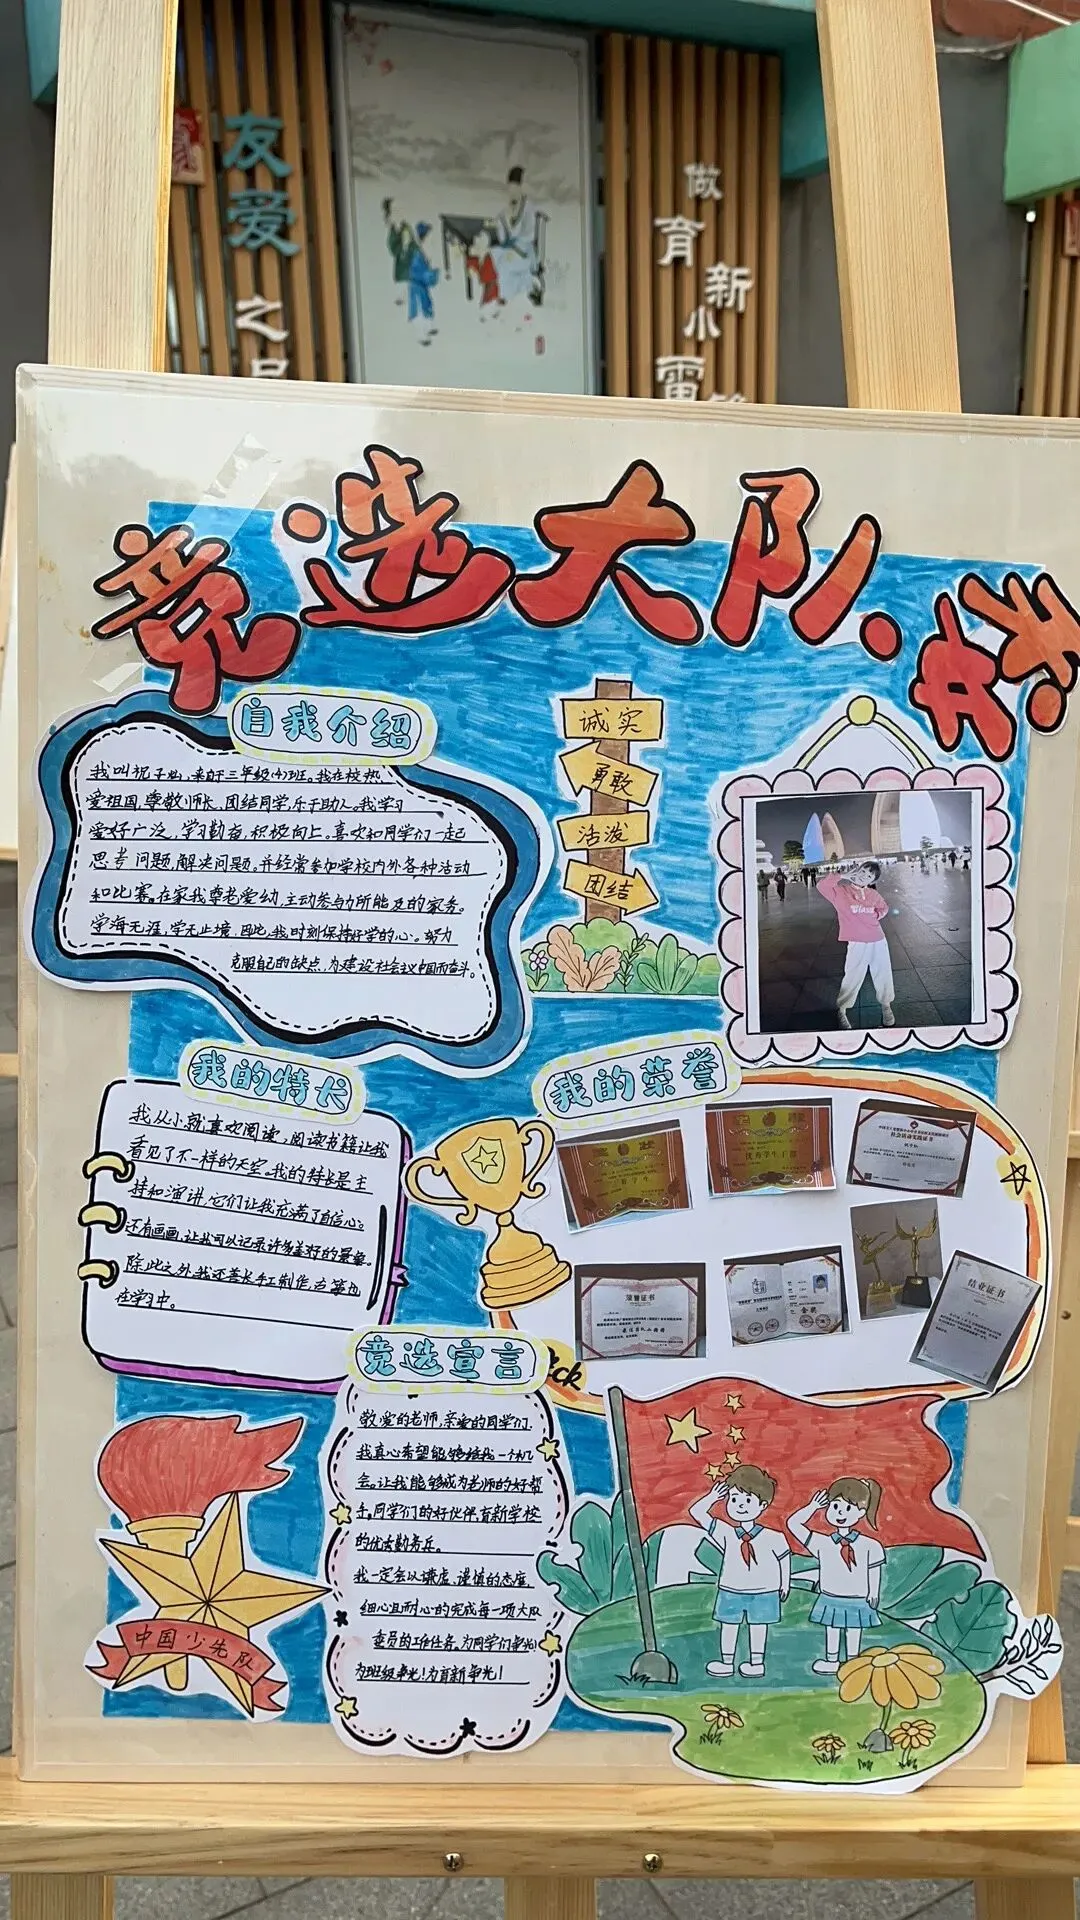 友爱之
做
育新小
雷
竞选大队委
自我介绍
我叫祝子灿,来自于三年级(4)班。我在校热
爱祖国,尊敬师长、团结同学,乐于助人。我学习
爱好广泛,学习勤奋,积极向上。喜欢和同学们一起
思考问题,解决问题,并经常参加学校内外各种活动
和比赛。在家我尊老爱幼,主动参与力所能及的家务。
学海无涯,学无止境,因此,我时刻保持好学的心。努力
克服自己的缺点,为建设社会主义中国而奋斗。
诚实
勇敢
活泼
团结
我的特长
我从小就喜欢阅读,阅读书籍让我
看见了不一样的天空。我的特长是主
持和演讲,它们让我充满了自信心。
还有画画,让我可以记录许多美好的景象。
除此之外,我还善长手工制作,古筝也
在学习中。
我的荣誉
优秀学生干部
社会活动实践证书
荣誉证书
金奖
结业证书
竞选宣言
敬爱的老师,亲爱的同学们,
我真心希望能够给我一个机
会。让我能够成为老师的好帮
手。同学们的好伙伴,育新学校
的优秀勤务兵。
我一定会以谦虚、谨慎的态度,
细心且耐心的完成每一项大队
委员的工作任务。为同学们争光!
为班级争光!为育新争光!
中国少先队